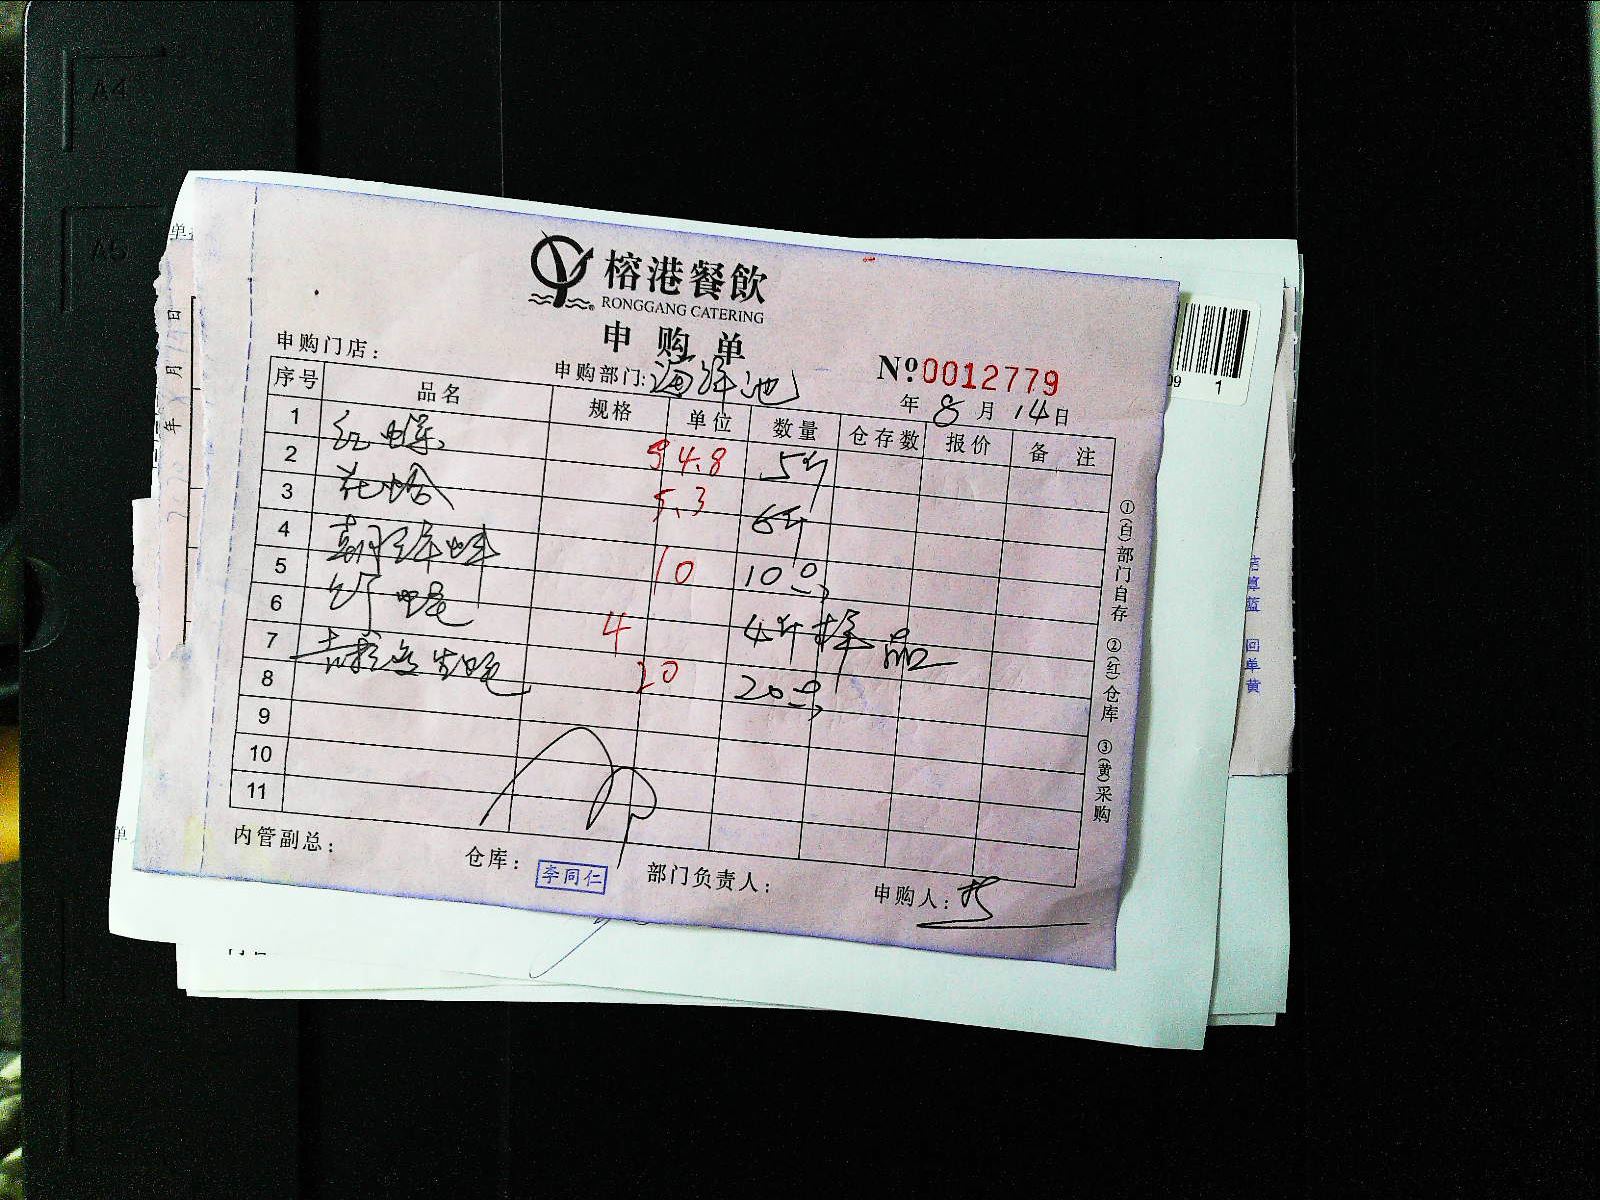 A4
A5
榕港餐飲
RONGGANG CATERING
申购单
申购门店：
申购部门：海鲜池
No 0012779
年 8 月 14 日
序号 品名 规格 单位 数量 仓存数 报价 备注
1 红螺 4.8 5斤
2 花蛤 5.3 6斤
3 10 10只
4 4 4斤样品
5 20 20只
6
7
8
9
10
11
①(白)部门自存 ②(红)仓库 ③(黄)采购
内管副总：
仓库：李同仁
部门负责人：
申购人：
年 月 日
09 1
结算蓝 回单黄
单